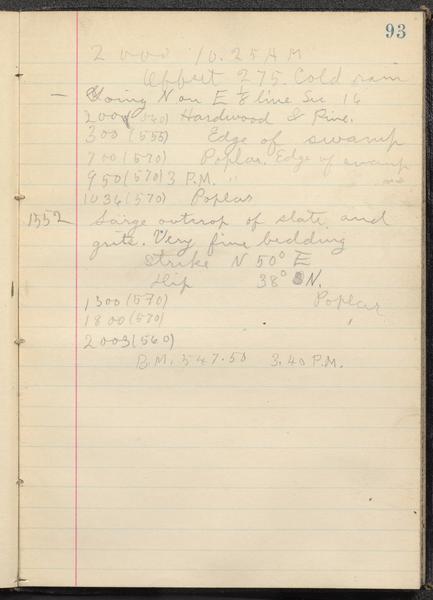 93
2000 10.25 A M
Offset 275. Cold rain
— Going N on E 1/8 line Sec 16
200 (560) Hardwood & Pine.
300 (555) Edge of swamp
700 (570) Poplar. Edge of swamp
950 (570) 3 P.M. "
1036 (570) Poplar
1552 Large outcrop of slate and
grits. Very fine bedding
Strike N 50° E
Dip 38° N.
1300 (570) Poplar
1800 (570) "
2003 (560)
B.M. 547.50 3.40 P.M.